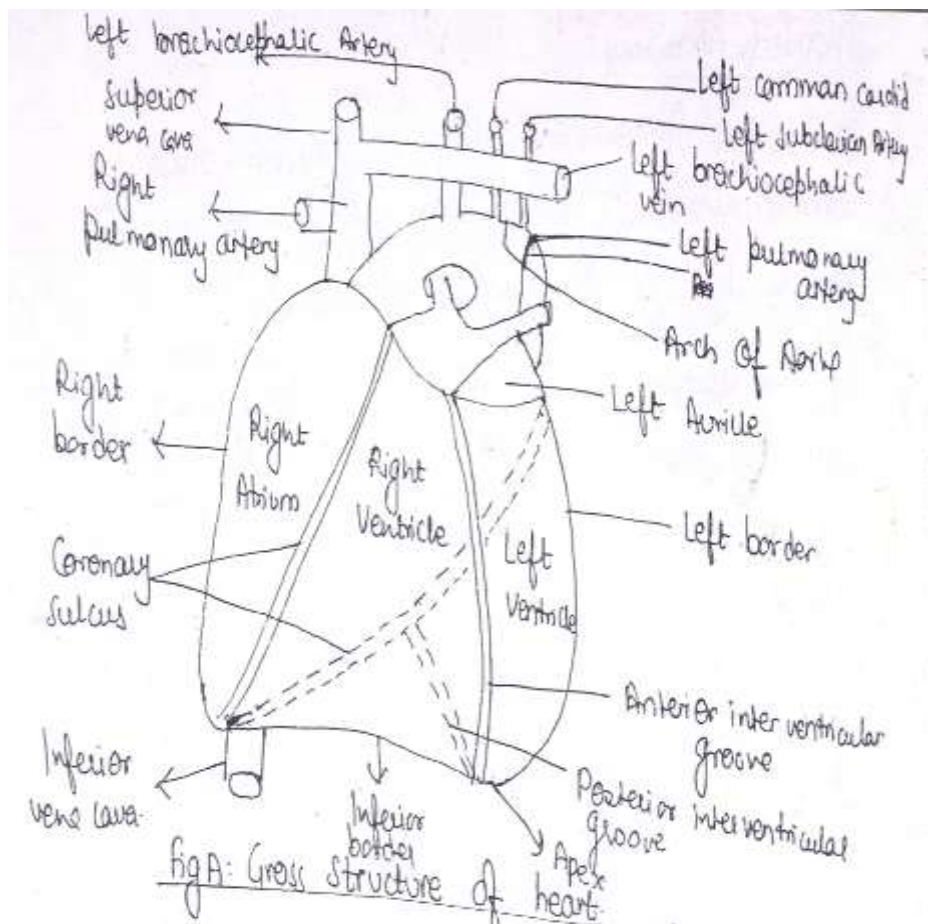 left brachiocephalic Artery
Superior
vena cava
Right
pulmonary artery
Left comman carotid
Left subclavian Artery
left brachiocephalic
vein
Left pulmonary
artery
Arch of Aorta
Left Auricle
Right
border
Right
Atrium
Right
Ventricle
Left
Ventricle
Left border
Coronary
sulcus
Anterior inter ventricular
groove
Posterior interventricular
groove
Inferior
vena cava
Inferior
border
Apex
fig A: Gross Structure of heart.